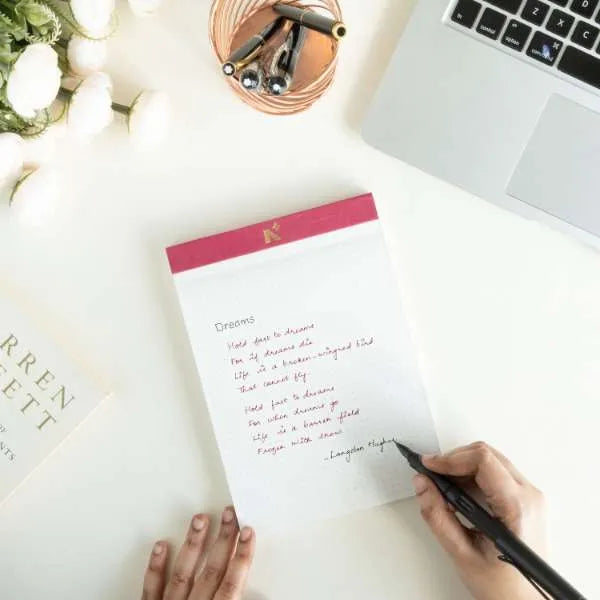 Dreams
Hold fast to dreams
For if dreams die
Life is a broken-winged bird
That cannot fly.
Hold fast to dreams
For when dreams go
Life is a barren field
Frozen with snow
-Langston Hughes
RREN
FETT
OF
NTS
control
option
command
Z
X
C
D